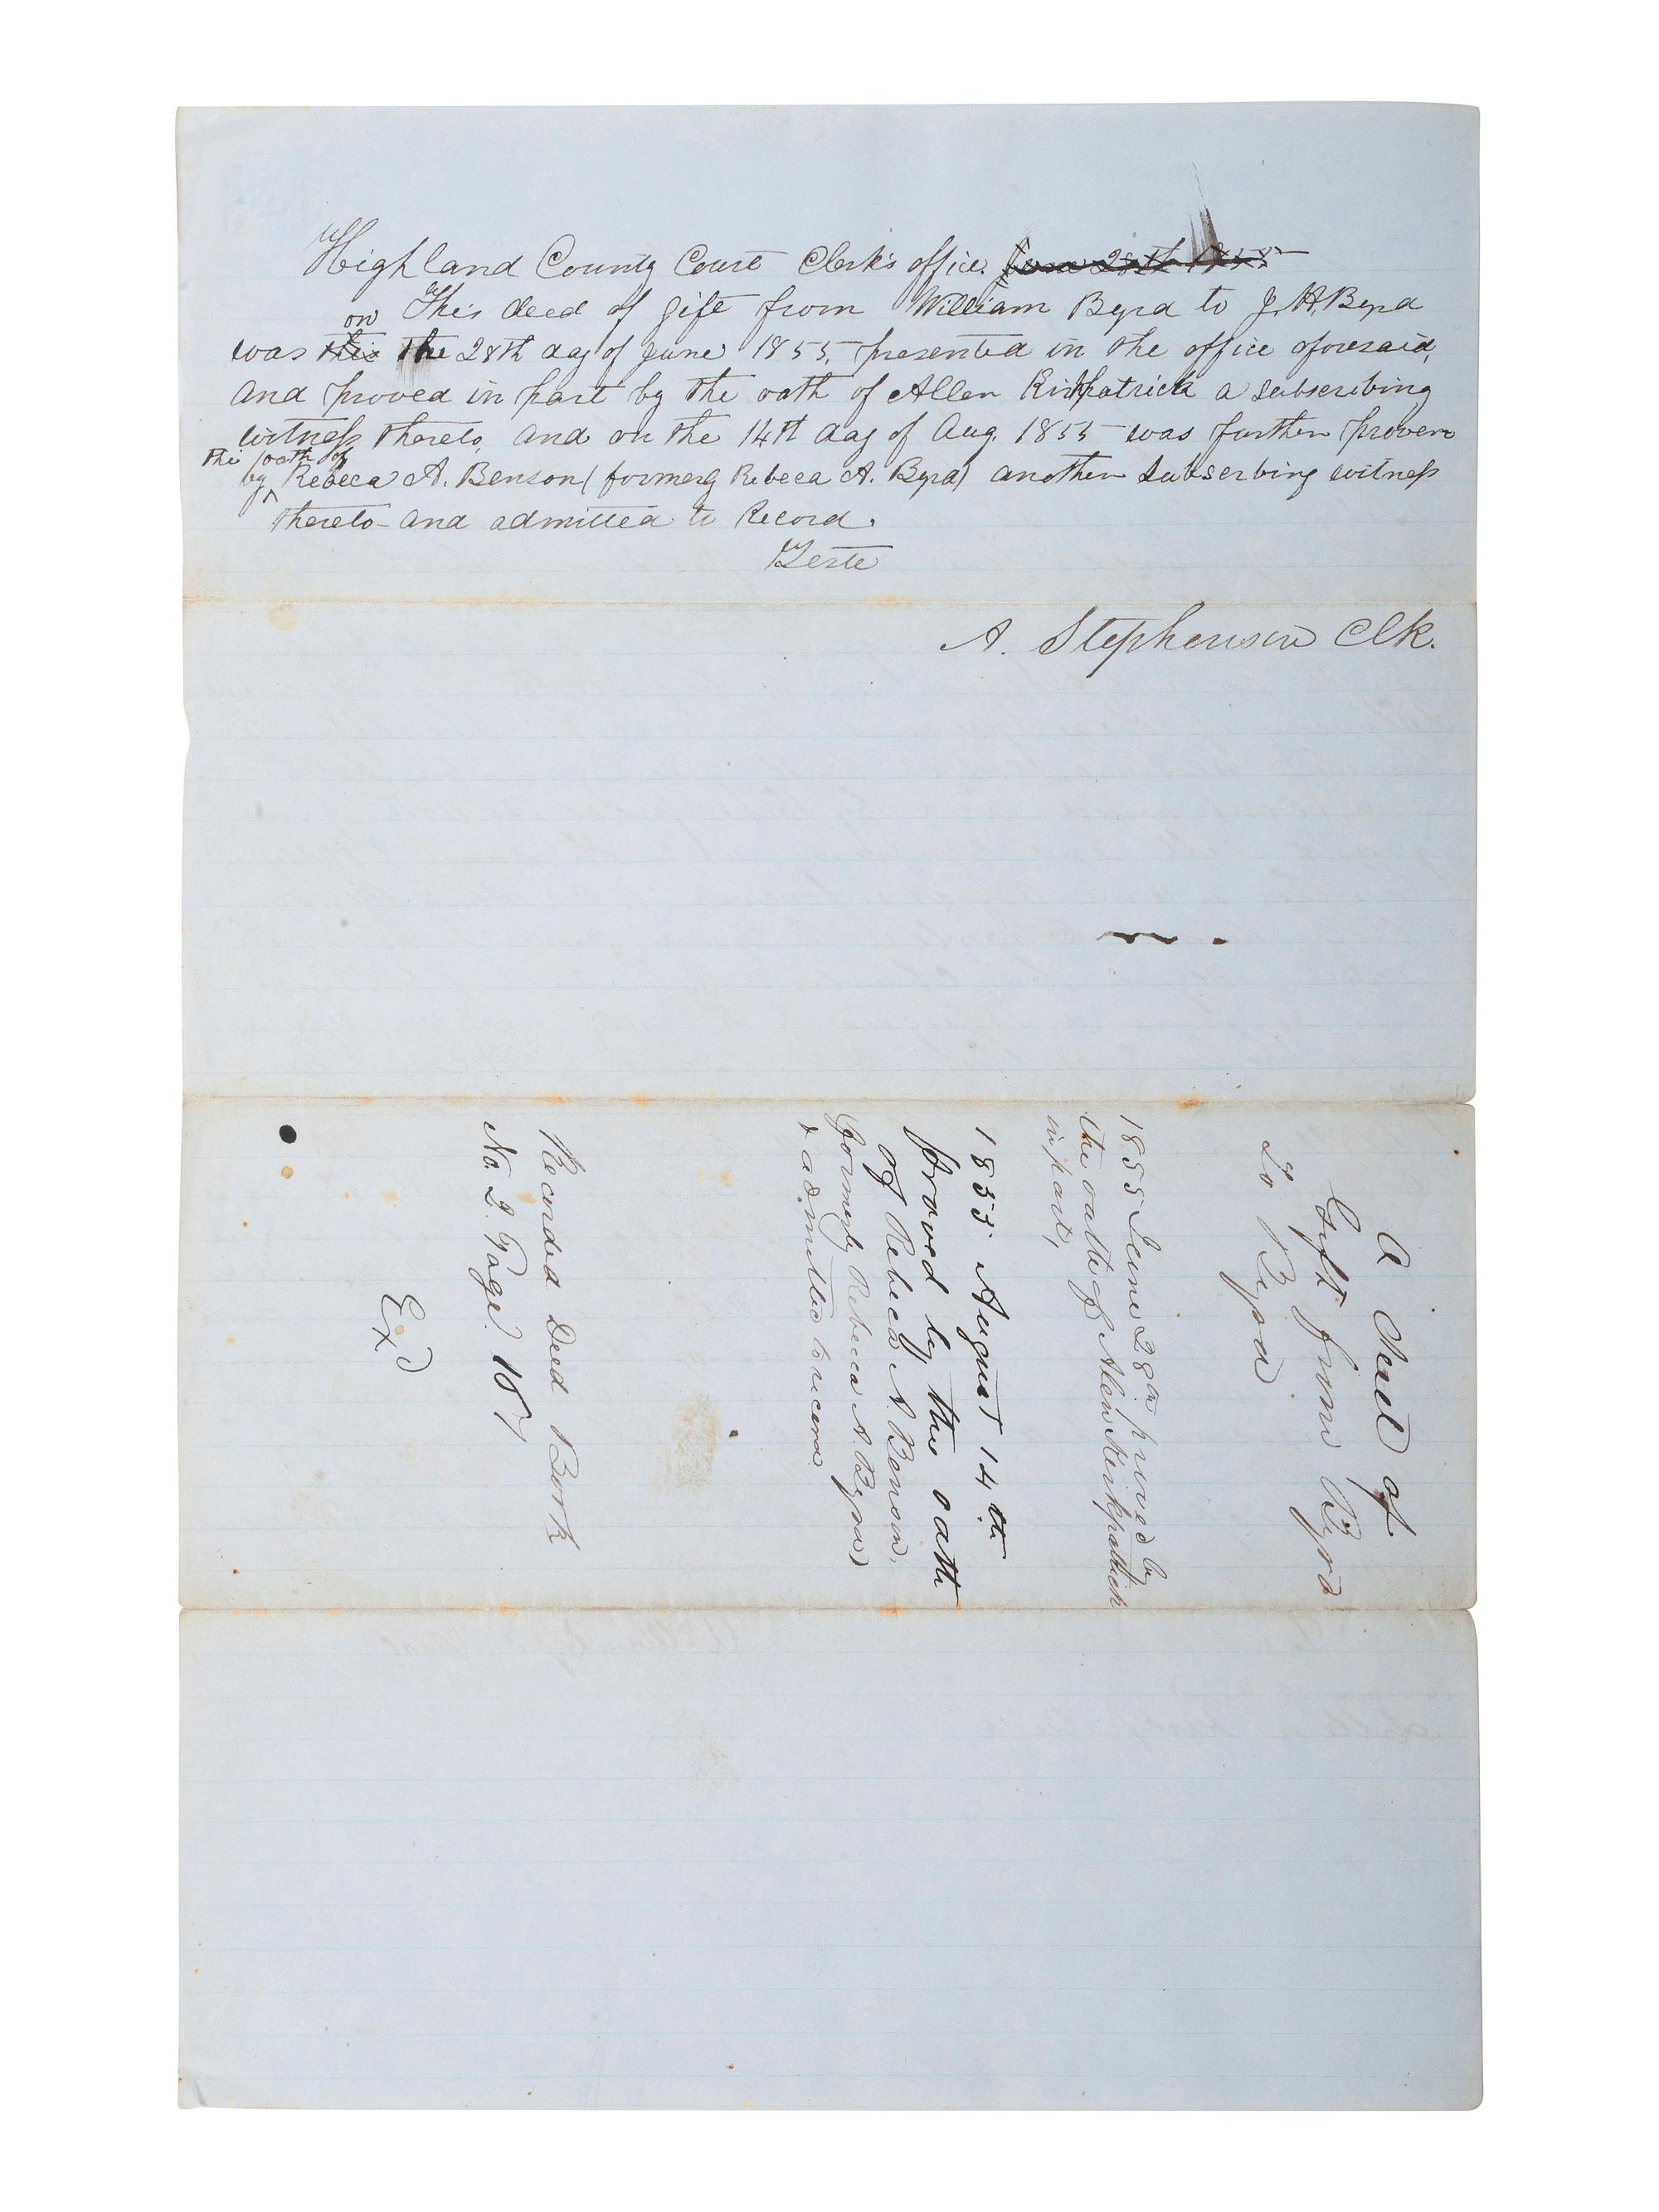 Highland County Court Clerk's office. June 28th 1855
This deed of gift from William Byrd to J. H. Byrd
on
was this the 28th day of June 1855, presented in the office aforesaid,
and proved in part by the oath of Allen Kirkpatrick a subscribing
witness thereto, and on the 14th day of Aug. 1855 was further proven
the oath of
by Rebeca A. Benson (formerly Rebeca A. Byrd) another subscribing witness
thereto and admitted to Record.
Teste
A. Stephenson Clk.
A Deed of
Gift from Byrd
To Byrd
1855 June 28th proved by
the oath of Allen Kirkpatrick
in part,
1855 August 14th
proved by the oath
of Rebeca A. Benson,
formerly Rebecca A. Byrd)
& admitted to record
Recorded Deed Book
No. 2. Page. 187
Exd